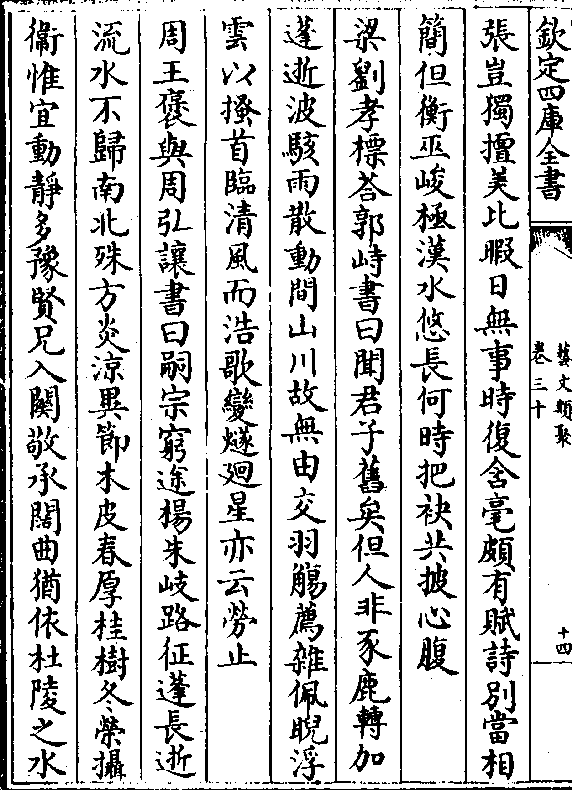 欽定四庫全書
藝文類聚
卷三十
十四
張豈獨擅美比暇日無事時復含毫頗有賦詩別當相
簡但衡巫峻極漢水悠長何時把袂共披心腹
梁劉孝標荅郭峙書曰聞君子舊矣但人非豕鹿轉加
蓬逝波駭雨散動間山川故無由交羽觴薦雜佩睨浮
雲以搔首臨清風而浩歌變燧廻星亦云勞止
周王襃與周弘讓書曰嗣宗窮途楊朱岐路征蓬長逝
流水不歸南北殊方炎涼異節木皮春厚桂樹冬榮攝
衞惟宜動靜多豫賢兄入關敬承闊曲猶依杜陵之水